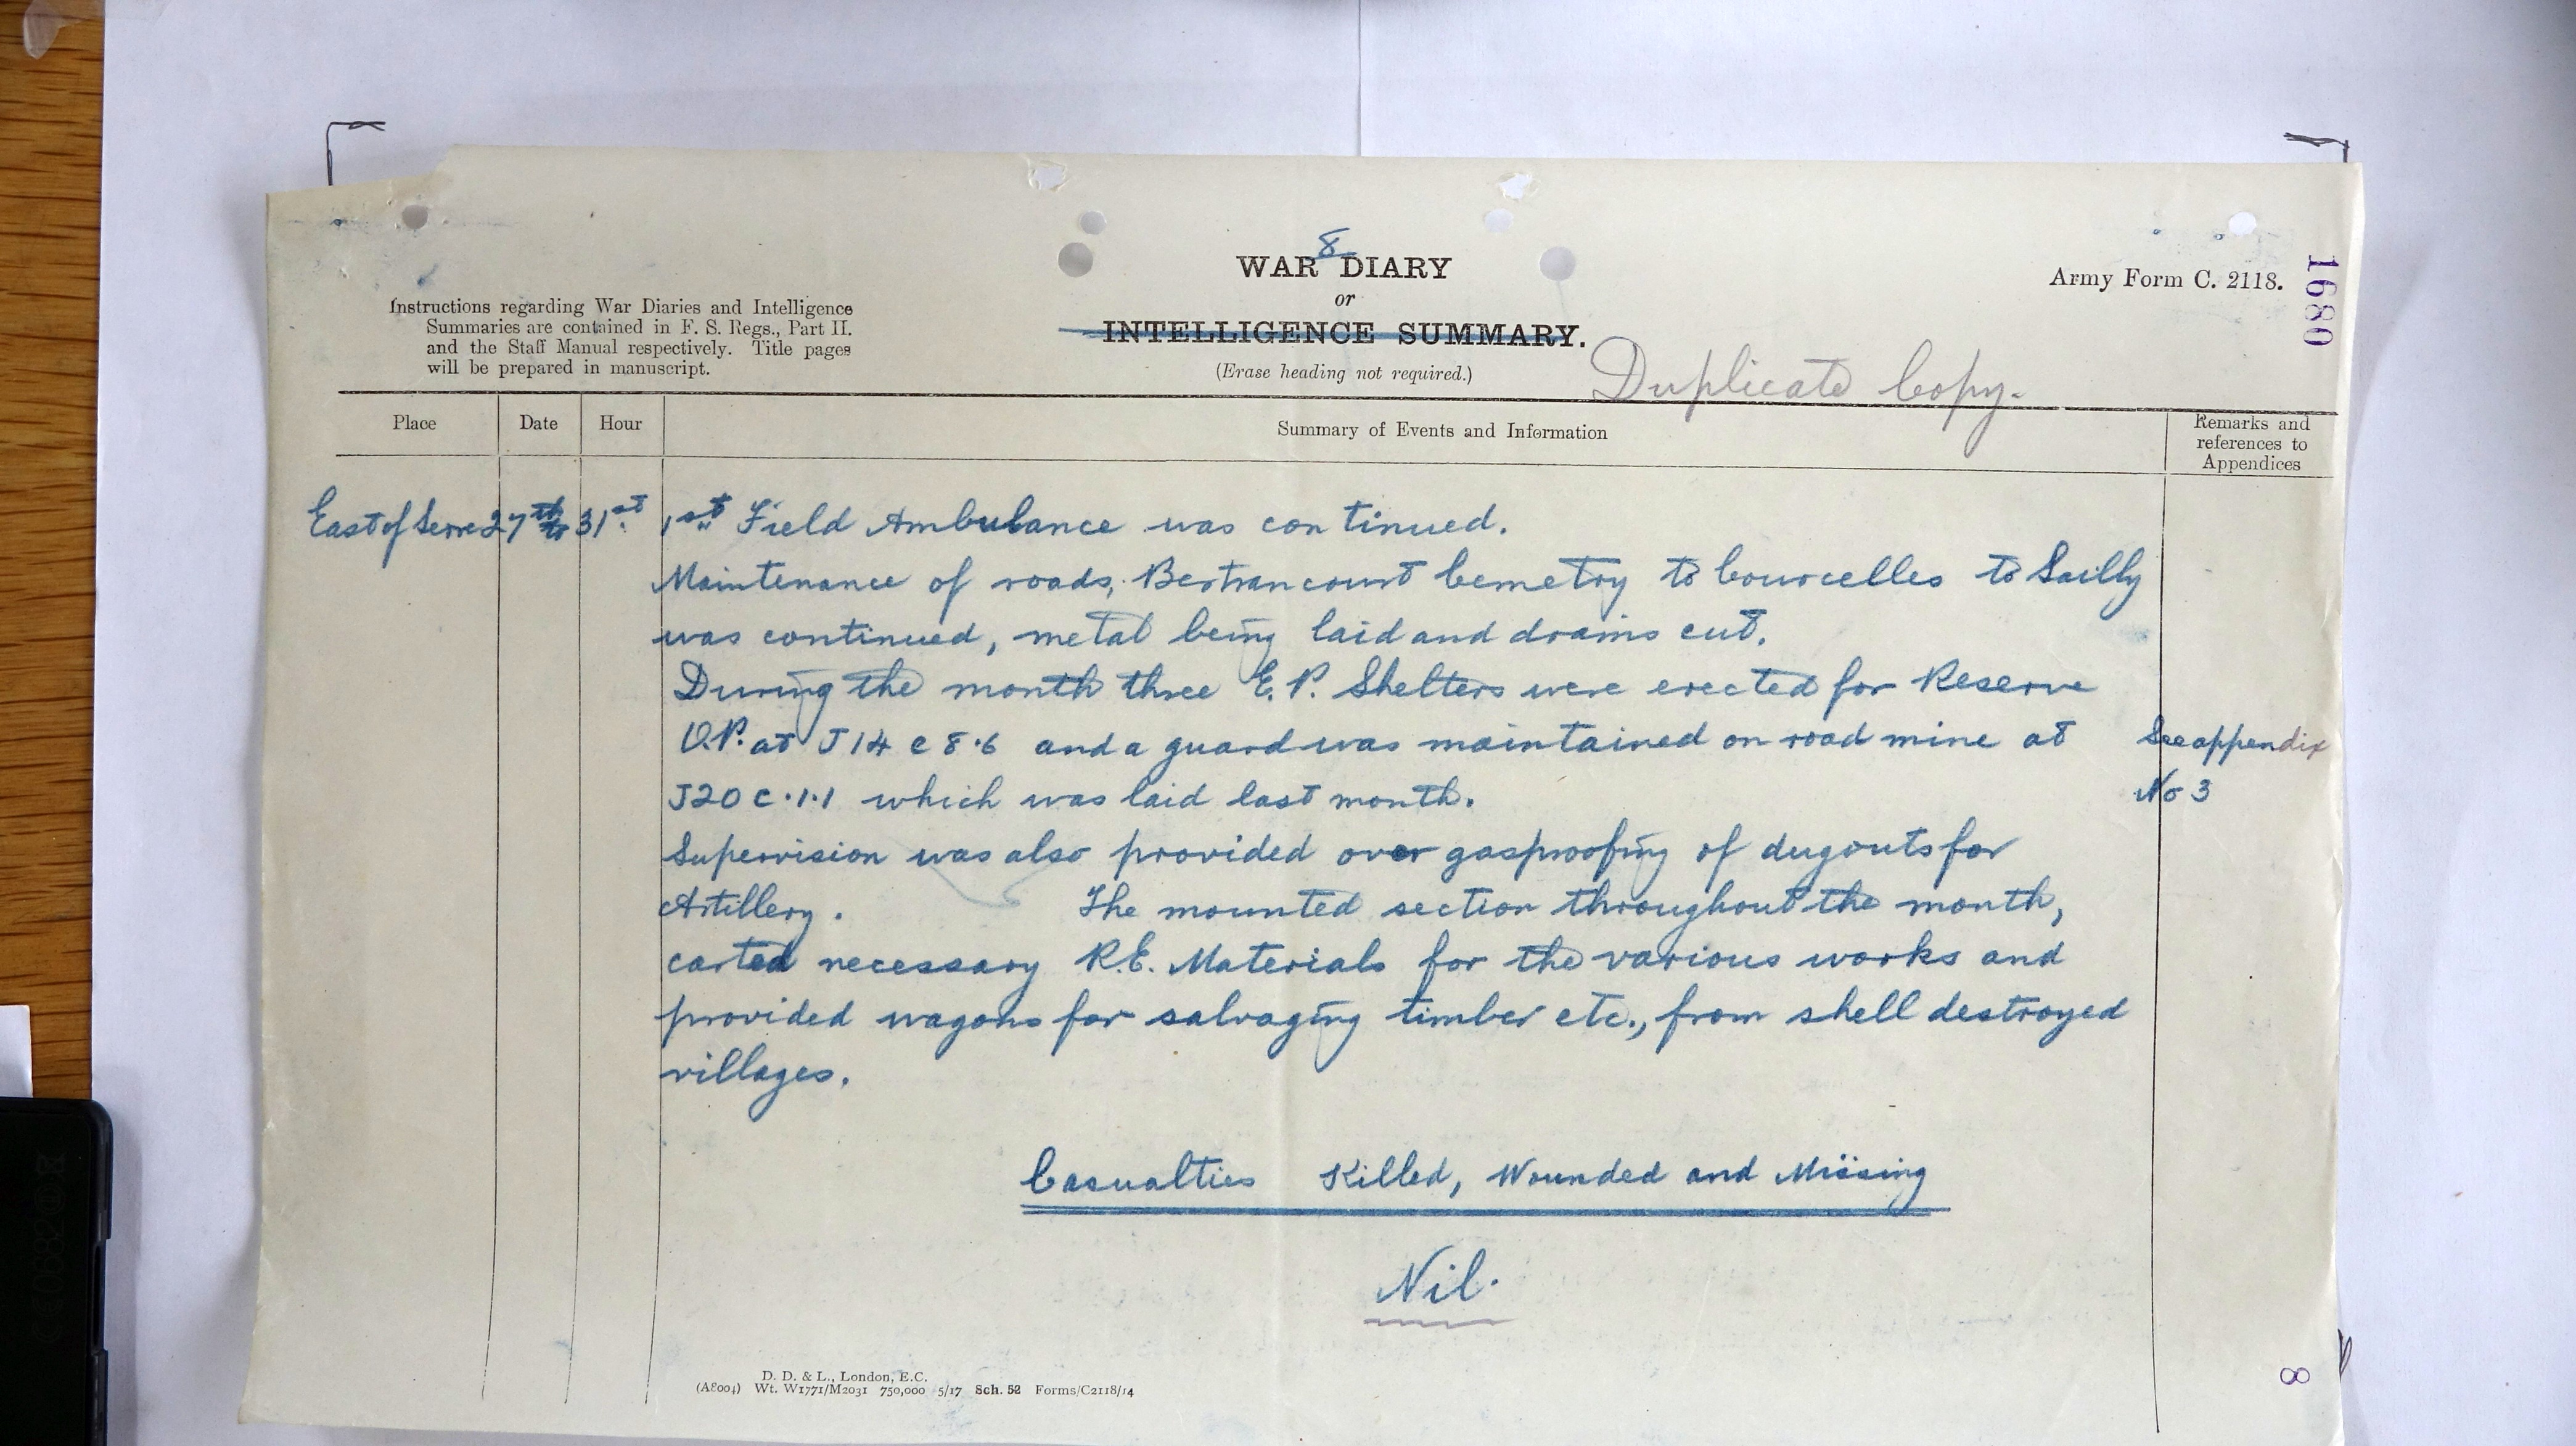 8
WAR DIARY
or
INTELLIGENCE SUMMARY.
(Erase heading not required.)
Instructions regarding War Diaries and Intelligence
Summaries are contained in F. S. Regs., Part II.
and the Staff Manual respectively. Title pages
will be prepared in manuscript.
Army Form C. 2118.
1680
Duplicate Copy.
Place Date Hour Summary of Events and Information Remarks and references to Appendices
East of Serre 27th to 31st. 1st Field Ambulance was continued.
Maintenance of roads, Bertrancourt Cemetry to Courcelles to Sailly
was continued, metal being laid and drains cut.
During the month three E.P. Shelters were erected for Reserve
O.P. at J14 c 8.6 and a guard was maintained on road mine at See appendix
J20 c.1.1 which was laid last month. No 3
Supervision was also provided over gasproofing of dugouts for
Artillery. The mounted section throughout the month,
carted necessary R.E. Materials for the various works and
provided wagons for salvaging timber etc., from shell destroyed
villages.
Casualties Killed, Wounded and Missing
Nil.
D. D. & L., London, E.C.
(A8004) Wt. W1771/M2031 750,000 5/17 Sch. 52 Forms/C2118/14
8